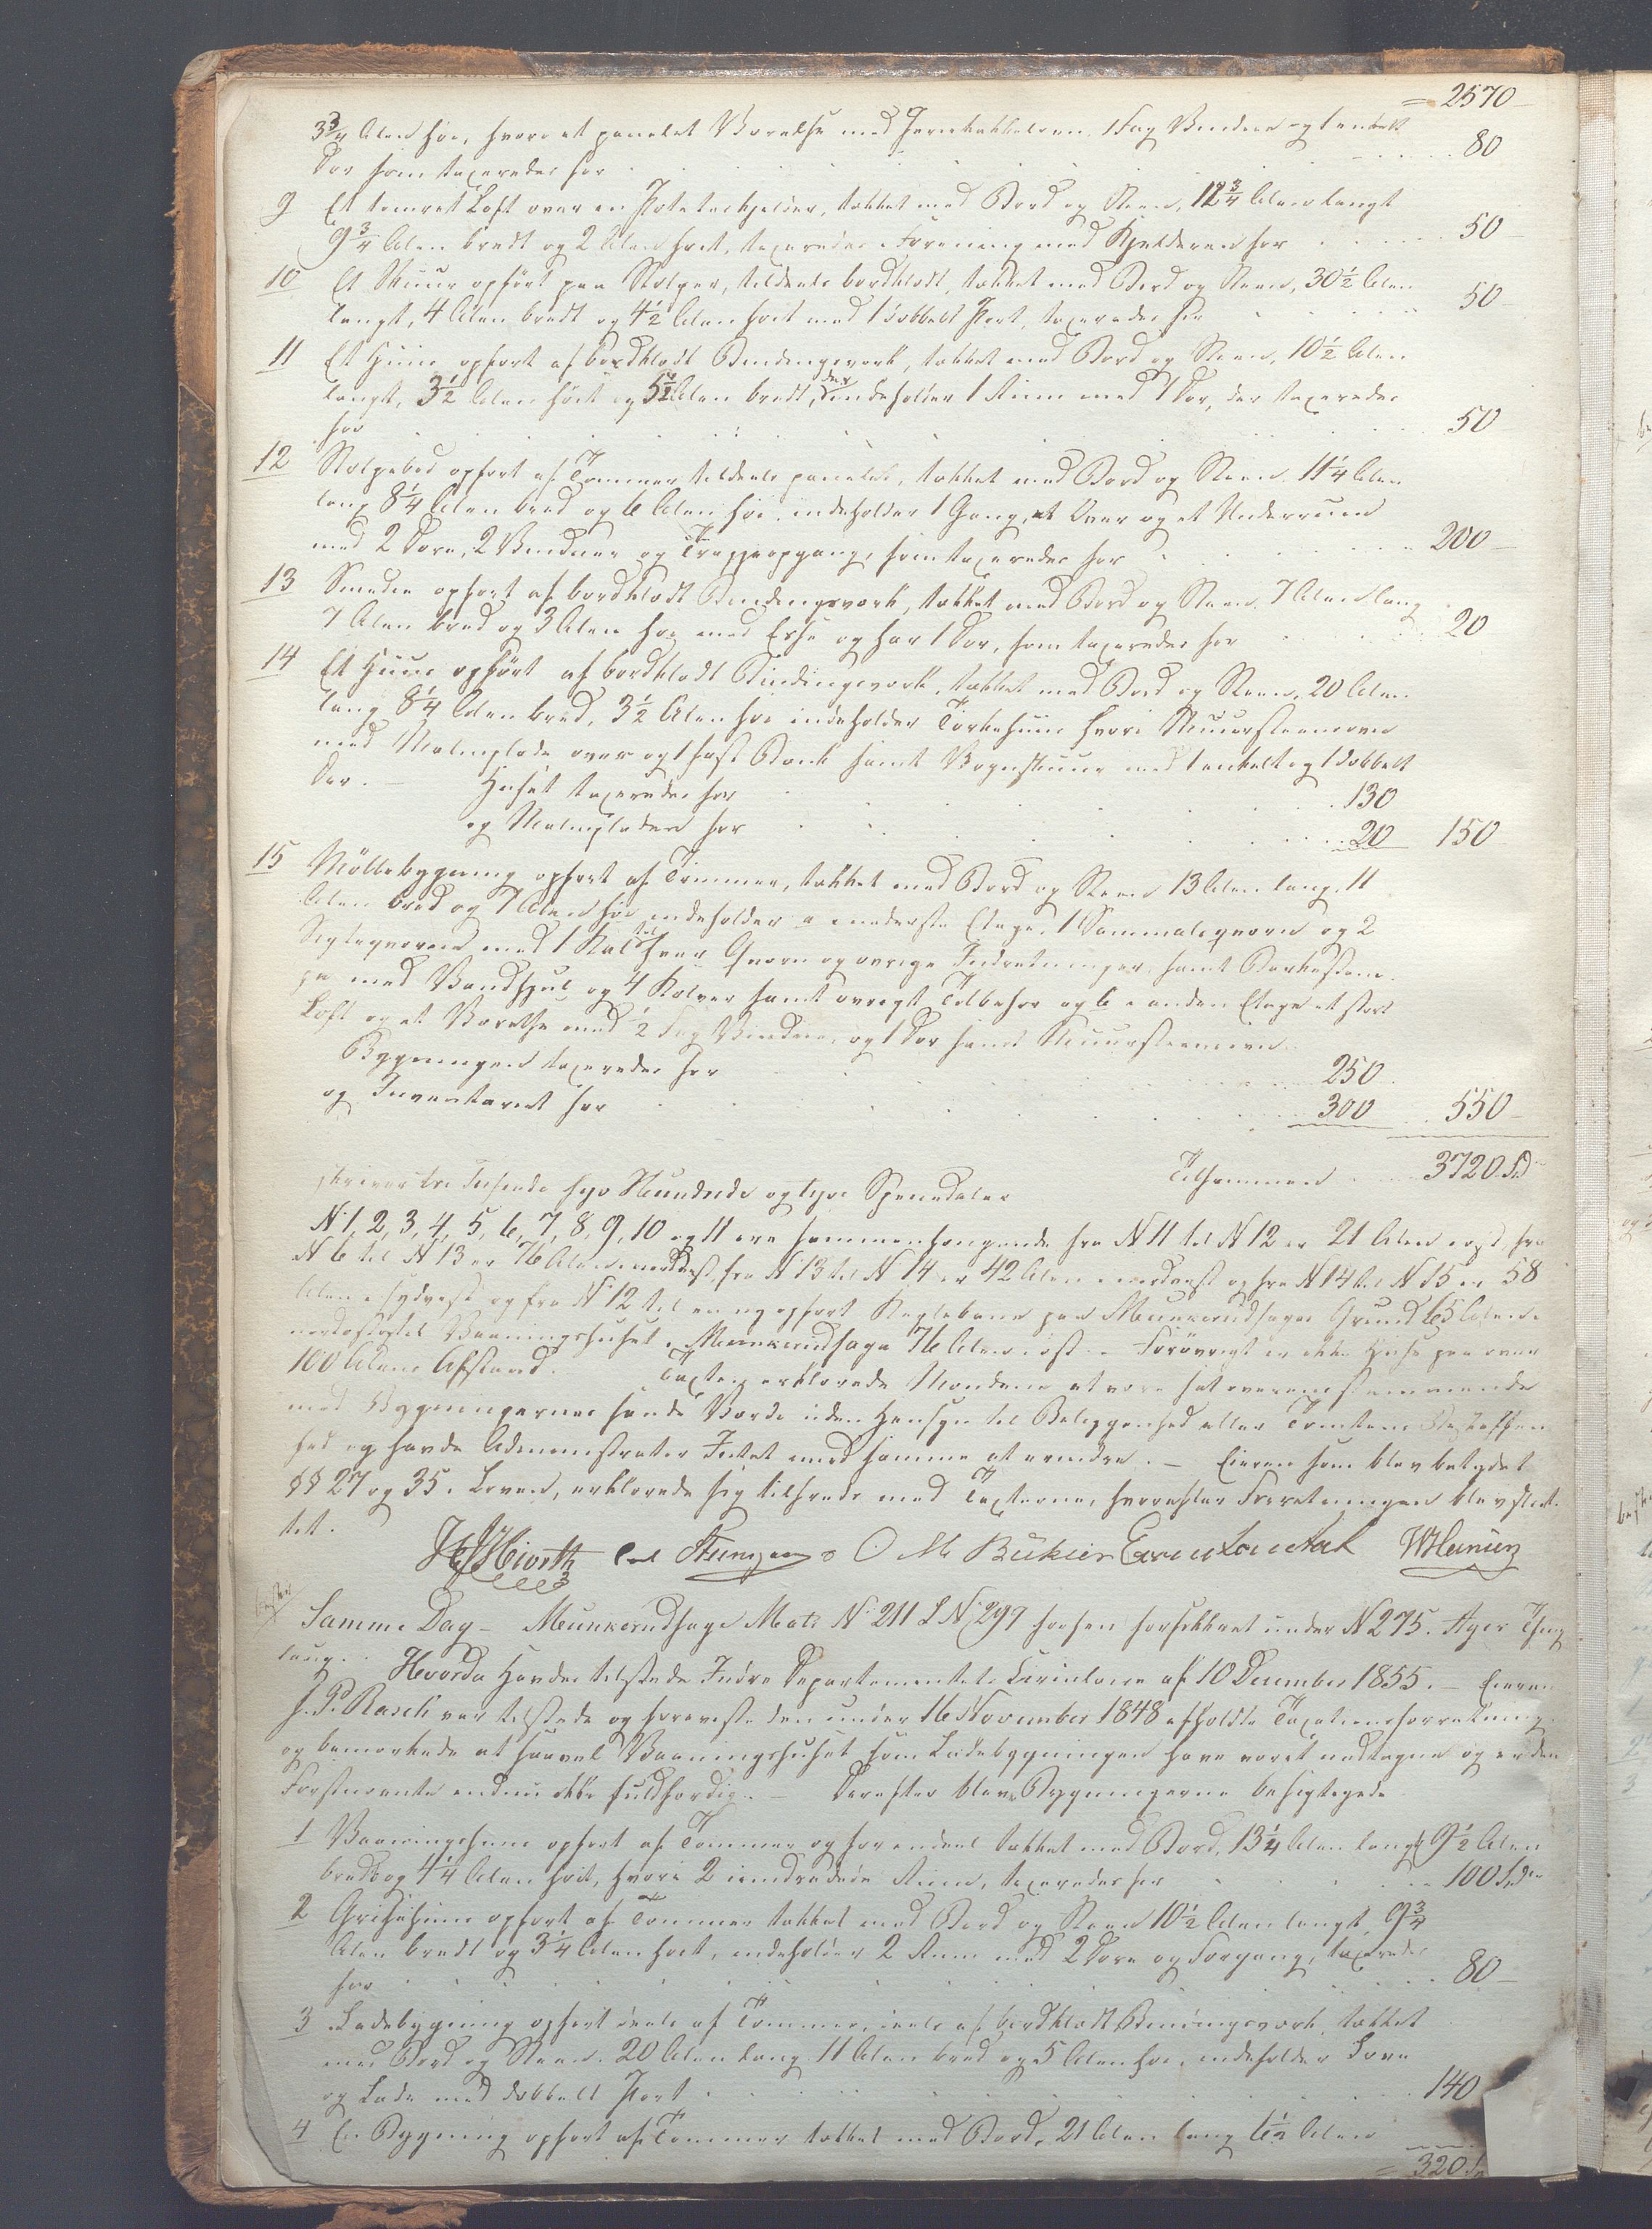 = 2570
3 3/4 Alen høi, hvori et panelet Værelse med Jernkakkelovn, 1 Fag Vinduer og 1 enkelt
Dør som taxeredes for 80
9 Et tomret Loft over en Poteteskjelder, tækket med Bord og Steen, 12 3/4 Alen langt
9 3/4 Alen bredt og 2 Alen høit, taxeredes i Forening med Kjelderen for 50
10 Et Skuur opført paa Stolper, tildeels bordklædt, tækket med Bord og Steen, 30 1/2 Alen
langt, 4 Alen bredt og 4 1/2 Alen høit med 1 dobbelt Port, taxeredes for 50
11 Et Huus opført af bordklædt Bindingsverk, tækket med Bord og Steen, 10 1/2 Alen
langt, 3 1/2 Alen høit og 5 1/2 Alen bredt, der indeholder 1 Rum med 1 Dør, der taxeredes
for 50
12 Stolpebod opført af Tømmer tildeels panelet, tækket med Bord og Steen 11 1/4 Alen
lang 8 1/4 Alen bred og 6 Alen høi, indeholder 1 Gang, et Over og et Underrum
med 2 Døre, 2 Vinduer og Trappeopgang, som taxeredes for 200
13 Smedie opført af bordklædt Bindingsværk, tækket med Bord og Steen, 7 Alen lang
7 Alen bred og 3 Alen høi med Esse og har 1 Dør, som taxeredes for 20
14 Et Huus opført af bordklædt Bindingsværk, tækket med Bord og Steen, 20 Alen
lang 8 1/4 Alen bred, 3 1/2 Alen høi indeholder Tørkehuus hvori Muursteensovn
med Malmplade over og 1 fast Bænk samt Vognskuur med 1 enkelt og 1 dobbelt
Dør. – Huset taxeredes for 130
og Malmpladen for 20 150
15 Møllebygning opført af Tømmer, tækket med Bord og Steen 13 Alen lang, 11
Alen bred og 7 Alen høi indeholder a nederste Etage, 1 Sammaleqværn og 2
Sigteqværne med 1 Kal til hver Qværn og øvrige Indretninger, samt Barkestam
pe med Vandhjul og 4 Kolver samt øvrigt Tilbehør og b i anden Etage et stort
Loft og et Værelse med 1/2 Fag Vinduer og 1 Dør samt Muursteensovn
Bygningen taxeredes for 250
og Inventariet for 300 550
Tilsammen 3720 Sp
skriver tre Tusinde syv Hundrede og tyve Speciedaler
N 1, 2, 3, 4, 5, 6, 7, 8, 9, 10 og 11 ere sammenhængende fra N 11 til N 12 er 21 Alen i øst, fra
N 6 til N 13 er 76 Alen i nordvest, fra N 13 til N 14 er 42 Alen i nordvest og fra N 14 til N 15 er 58
Alen i sydvest og fra N 12 til en ny opført Keglebane paa Munkerudsages Grund 65 Alen i
nordost og til Vaaningshuset i Munkerudsage 76 Alen i øst – Forøvrigt er ikke Huse paa over
100 Alens Afstand. Taxten erklærede Mændene at være sat overeensstemmende
med Bygningernes sande Værdi uden Hensyn til Beliggenhed eller Tomtens Beskaffen
hed og havde Administrator Intet mod samme at erindre. – Eieren som blev betydet
§§ 27 og 35 i Loven, erklærede sig tilfreds med Taxterne, hvorefter Forretningen blev slut
tet.
Hiorth O M Bukier Even
Samme Dag – Munkerudsage Mats N 211 L N 299 forhen forsikkret under N 275. Ager Thing
laug. Hvorda Havdes tilstede Indre Departementets Circulaire af 10 December 1855. – Eieren
J. P. Rasch var tilstede og foreviste den under 16 November 1848 afholdte Taxationsforretning
og bemærkede at saavel Vaaningshuset som Ladebygningen have været nedtagne og er den
Førstnævnte endnu ikke fuldfærdig. – Derefter blev Bygningerne besigtigede
1 Vaaningshuus opført af Tømmer og for endeel tækket med Bord, 13 1/4 Alen langt 9 1/2 Alen
bredt og 4 1/4 Alen høit, hvori 2 uindredede Rum, taxeredes for 100 Spd
2 Grisehuus opført af Tømmer tækket med Bord og Steen 10 1/2 Alen langt, 9 3/4
Alen bredt og 3 1/4 Alen høit, indeholder 2 Rum med 2 Døre og Forgang, taxeredes
for 80
3 Ladebygning opført deels af Tømmer, deels af bordklædt Bindingsværk, tækket
med Bord og Steen. 20 Alen lang 11 Alen bred og 5 Alen høi, indeholder Love
og Lade med dobbelt Port 140
4 En Bygning opført af Tømmer tækket med Bord, 21 Alen lang 6 1/2 Alen
= 320 Sp